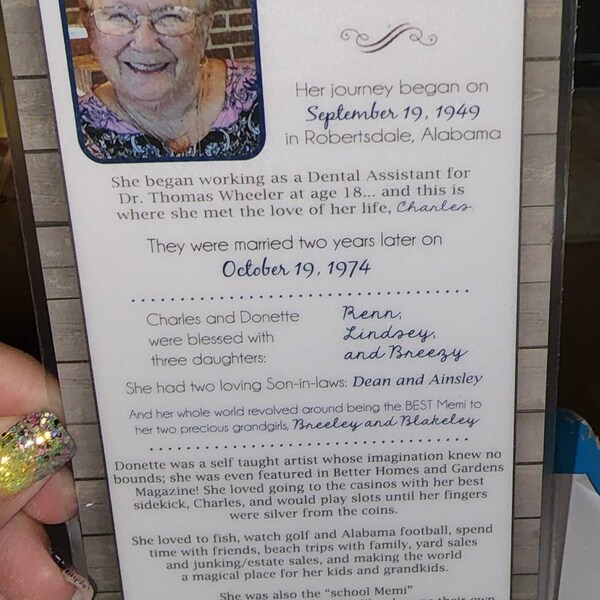 Her journey began on
September 19, 1949
in Robertsdale, Alabama
She began working as a Dental Assistant for
Dr. Thomas Wheeler at age 18... and this is
where she met the love of her life, Charles.
They were married two years later on
October 19, 1974
Charles and Donette
were blessed with
three daughters:
Renn,
Lindsey,
and Breezy
She had two loving Son-in-laws: Dean and Ainsley
And her whole world revolved around being the BEST Memi to
her two precious grandgirls, Breeley and Blakeley
Donette was a self taught artist whose imagination knew no
bounds; she was even featured in Better Homes and Gardens
Magazine! She loved going to the casinos with her best
sidekick, Charles, and would play slots until her fingers
were silver from the coins.
She loved to fish, watch golf and Alabama football, spend
time with friends, beach trips with family, yard sales
and junking/estate sales, and making the world
a magical place for her kids and grandkids.
She was also the "school Memi"